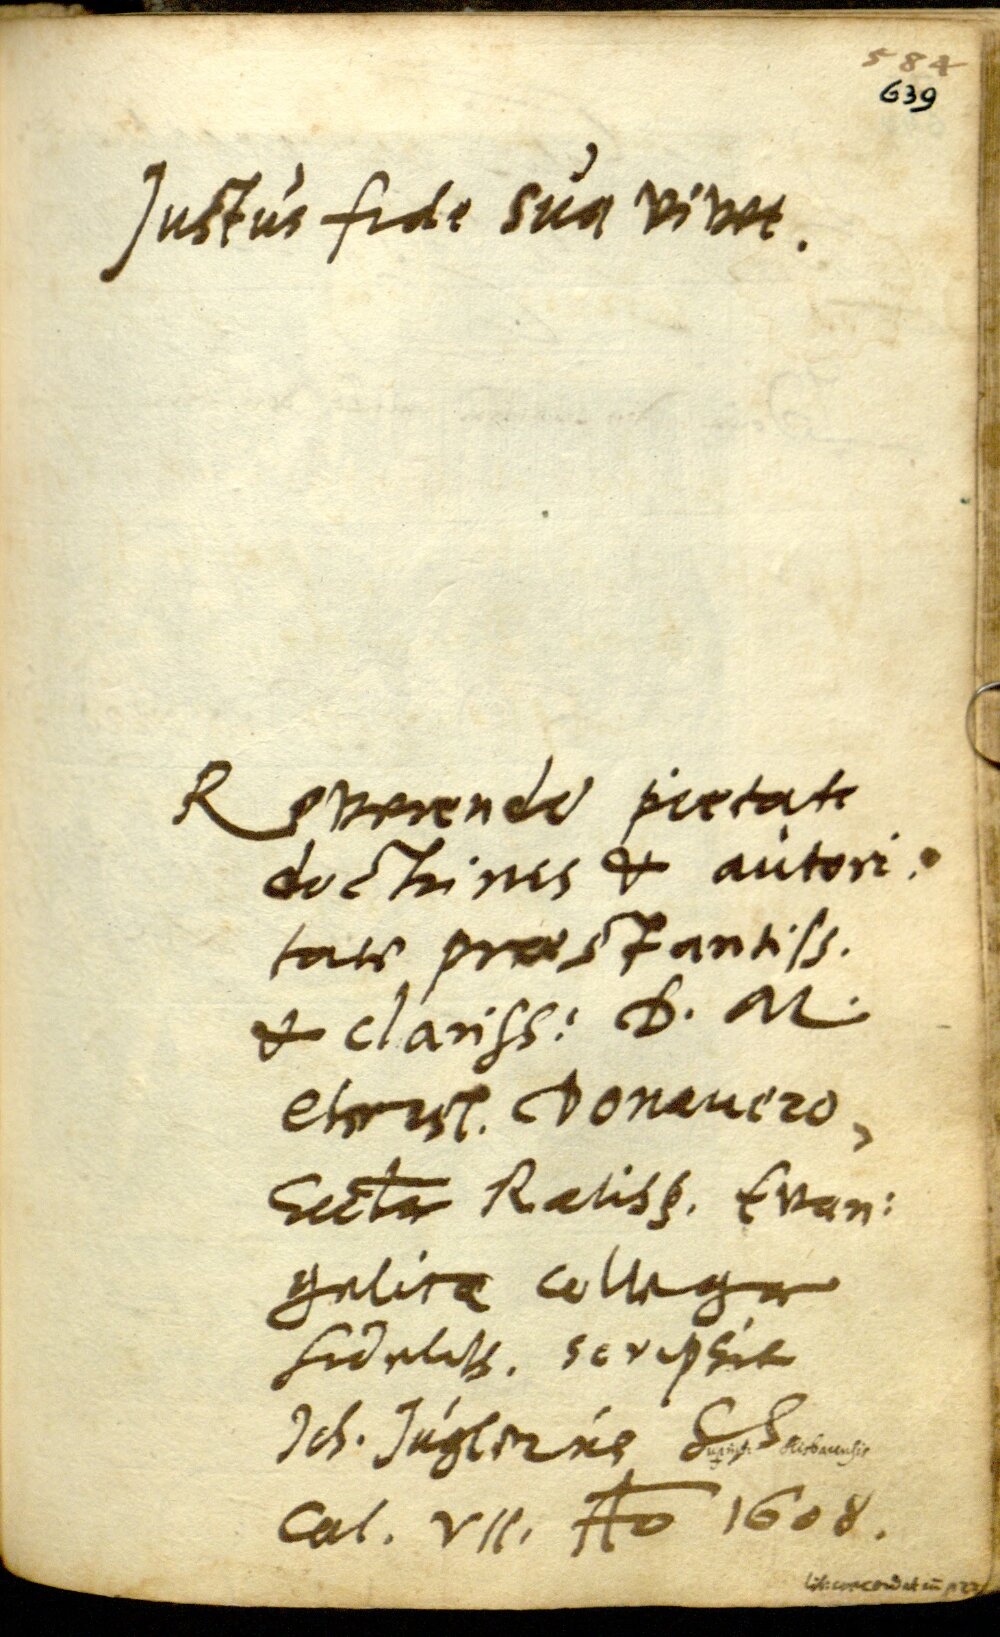 584
639
Justus fide sua vivet.
Reverendo pietate
doctrina & autori:
tate præstantiss.
& clariss: D. M.
Christ. Donauero,
Ratisb. Evan:
gelicæ collega
fideliss. scripsit
Joh. Juglerus
Cal. VII. Ao 1608.